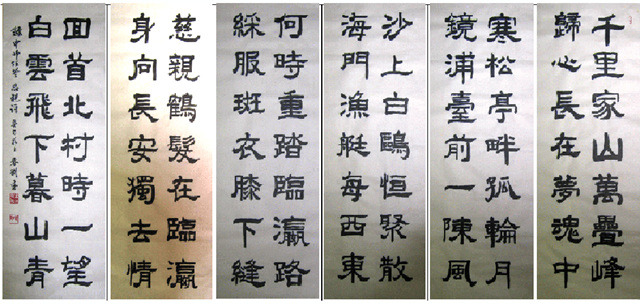 千里家山萬疊峰
歸心長在夢魂中
寒松亭畔孤輪月
鏡浦臺前一陳風
沙上白鷗恒聚散
海門漁艇每西東
何時重踏臨瀛路
綵服斑衣膝下縫
慈親鶴髮在臨瀛
身向長安獨去情
回首北村時一望
白雲飛下暮山青
思親詩